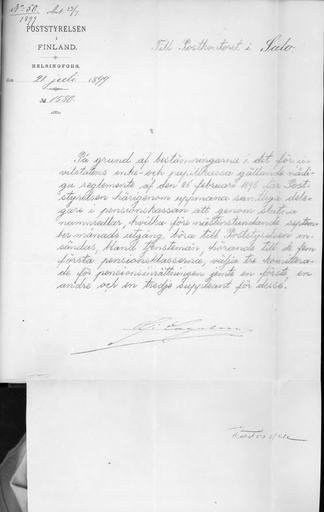 No 50.
1899
POSTSTYRELSEN
I
FINLAND.
HELSINGFORS,
den 21 juli 1899
№ 1550.
Till Postkontoret i Salo
På grund af bestämningarne i det för ci-
vilstatens enke- och pupillkassa gällande nådi-
ga reglemente af den 26 februari 1896 får Post-
styrelsen härigenom uppmana samtlige delä-
gare i pensionskassan att genom slutna
namnsedlar, hvilka före nästinstundande septem-
ber månads utgång böra till Poststyrelsen in-
sändas, bland tjenstemän, hörande till de fem
första pensionsklasserna, välja tre komitera-
de för pensionsinrättningen jemte en förste, en
andre och en tredje suppleant för desse.